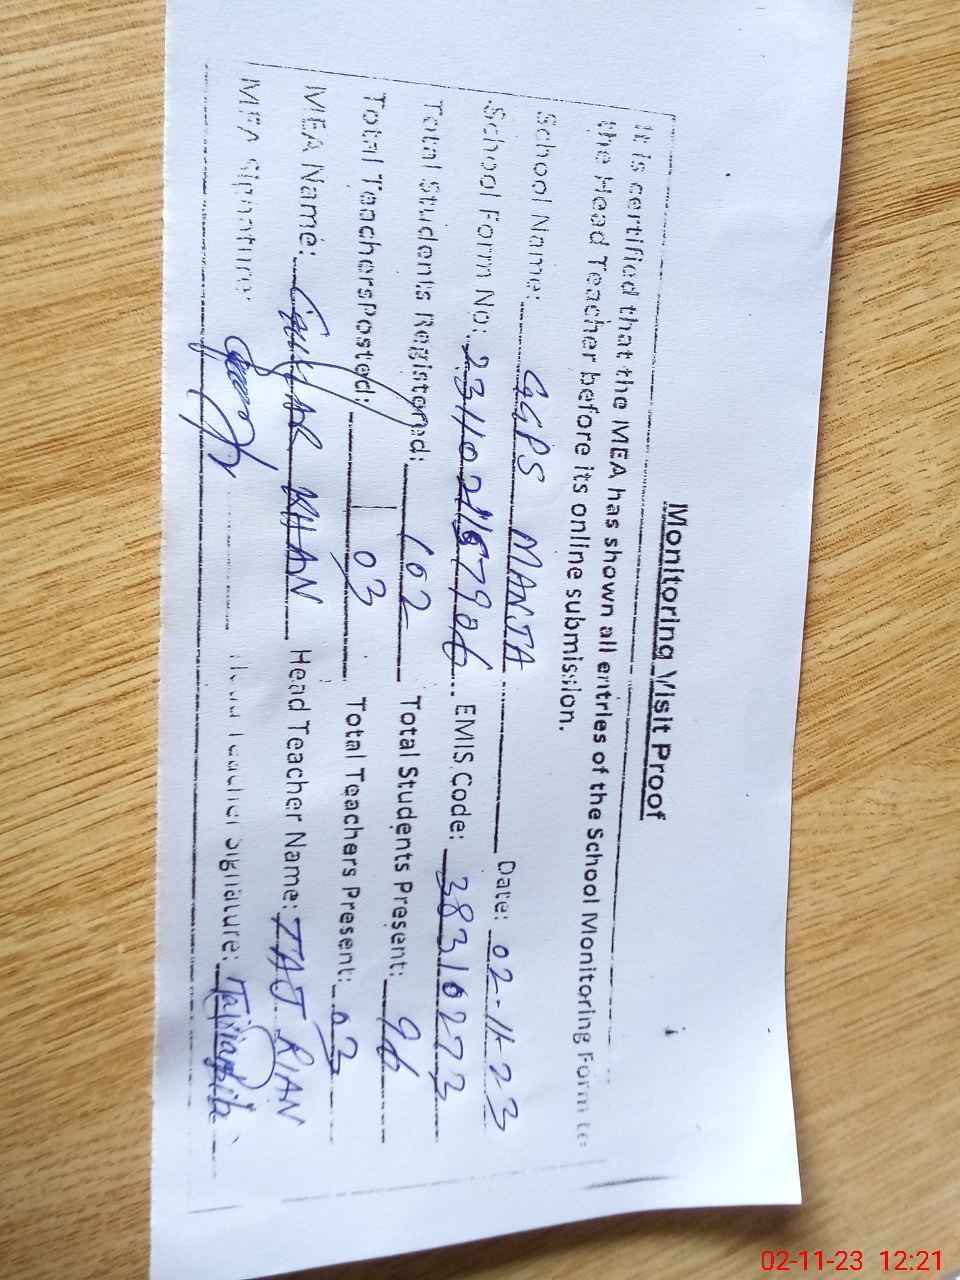 Monitoring Visit Proof
It is certified that the MEA has shown all entries of the School Monitoring Form to
the Head Teacher before its online submission.
School Name: GGPS MANJA Date: 02-11-23
School Form No: EMIS Code: 38310273
Total Students Registered: 102 Total Students Present: 96
Total Teachers Posted: 03 Total Teachers Present: 03
MEA Name: KHAN Head Teacher Name: TAJ RIAN
MEA Signature: Head Teacher Signature:
02-11-23 12:21